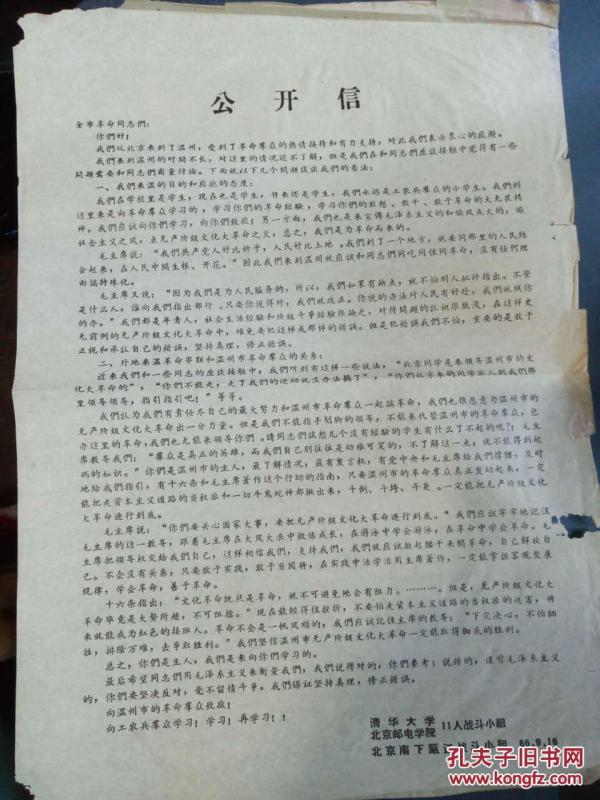 公开信
全市革命同志們：
你們好！
我們从北京来到了温州，受到了革命羣众的热情接待和有力支持，对此我們表示衷心的感谢。
我們来到温州的时間不长，对这里的情况还不了解，但是我們在和同志們座談接触中觉得有一些
問題需要和同志們商量讨論。下面就以下几个問題談談我們的看法：
一、我們来温的目的和应抱的态度：
我們在学校里是学生，現在也是学生，将来还是学生，我們永远是工农兵羣众的小学生。我們到
这里来是向革命羣众学习的，学习你們的革命經驗，学习你們的敢想、敢干、敢于革命的大无畏精
神。我們应該向你們学习，向你們致敬！另一方面，我們也是来宣傳毛泽东主义的和煽风点火的，煽
社会主义之风，点无产阶级文化大革命之火，总之，我們是为革命而来的。
毛主席說：“我們共产党人好比种子，人民好比土地。我們到了一个地方，就要同那里的人民結
合起来，在人民中間生根、开花。”因此我們来到温州就应該和同志們同吃同住同革命，沒有任何理
由搞特殊化。
毛主席又說：“因为我們是为人民服务的，所以，我們如果有缺点，就不怕别人批評指出。不管
是什么人，誰向我們指出都行。只要你說得对，我們就改正。你說的办法对人民有好处，我們就照你
的办。”我們都是年青人，社会生活經驗和阶级斗爭經驗很缺乏，对待問題的認识很肤浅，在这样史
无前例的无产阶级文化大革命中，难免要犯这样或那样的错誤。但是犯错誤我們不怕，重要的是敢于
正視和承認自己的错誤，坚持真理，修正错誤。
二、外地来温革命串联和温州市革命羣众的关系：
近来我們和一些同志的座談接触中，我們听到有这样一些說法，“北京同学是来領导温州市的文
化大革命的”，“你們不能走，走了我們的运动就沒办法搞了”，“你們北京来的同学派人到我們那
里領导領导，指引指引吧！”等等。
我們認为我們有責任尽自己的最大努力和温州市革命羣众一起搞革命，我們也很愿意为温州市的
无产阶级文化大革命出一分力量。但是我們不能指手划脚的領导，不能来代替温州市的革命羣众，包
办这里的革命，我們也无能来領导你們。請同志們試想几个沒有經驗的学生有什么了不起的呢?！毛主
席教导我們：“羣众是真正的英雄，而我們自己則往往是幼稚可笑的，不了解这一点，就不能得到起
碼的知识。”你們是温州市的主人，最了解情况，最有发言权，有党中央和毛主席給我們撑腰，及时
地給我們指引，有十六条和毛主席著作这个行动的指南，只要温州市的革命羣众真正发动起来，一定
能把走資本主义道路的当权派和一切牛鬼蛇神都揪出来，斗倒、斗垮、斗臭。一定能把无产阶级文化
大革命进行到底。
毛主席說：“你們要关心国家大事，要把无产阶级文化大革命进行到底。”我們应該牢牢地記注
毛主席的这一教导，跟着毛主席在大风大浪中鍛炼成长，在游泳中学会游泳，在革命中学会革命。毛
主席把領导权交給我們自己，这样相信我們，支持我們，我們就应該挺起腰干来鬧革命，自己解放自
己。不会沒有关系，只要敢于实践，敢于当闖将，在实践中活学活用主席著作，一定能掌握客观发展
规律，学会革命，善于革命。
十六条指出：“文化革命既然是革命，就不可避免地会有阻力。………。但是，无产阶级文化大
革命毕竟是大势所趋，不可阻擋。”現在能經得住挫折，不要怕走資本主义道路的当权派的迫害，将
来就能成为紅色的接班人。革命不会是一帆风順的，我們应該記住主席的教导：“下定决心，不怕牺
牲，排除万难，去爭取胜利。”我們坚信温州市无产阶级文化大革命一定能取得彻底的胜利。
总之，你們是主人，我們是来向你們学习的。
最后希望同志們用毛泽东主义来衡量我們，我們說得对的，你們参考；說错的，违背毛泽东主义
的，你們要坚决反对，毫不留情斗爭。我們保証坚持真理，修正错誤。
向温州市的革命羣众致敬！
向工农兵羣众学习！学习！再学习！！
清华大学
北京邮电学院 11人战斗小組
北京南下 战斗小組 66.9.16
孔夫子旧书网
www.kongfz.com